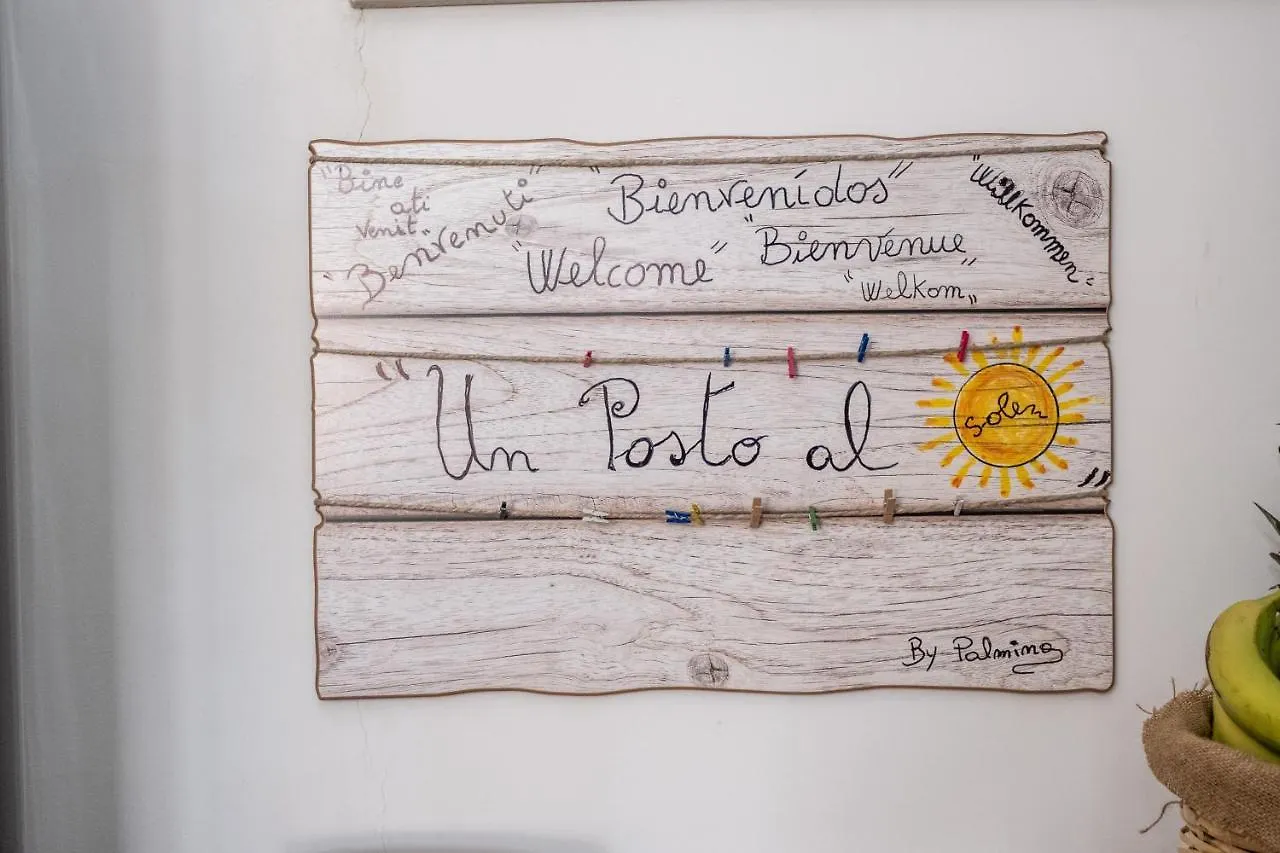 "Bine
ati
venit"
"Benvenuti"
"Bienvenidos"
"Welcome"
"Bienvenue"
"Welkom"
"Willkommen"
"Un Posto al
Sole
"
By Palmina